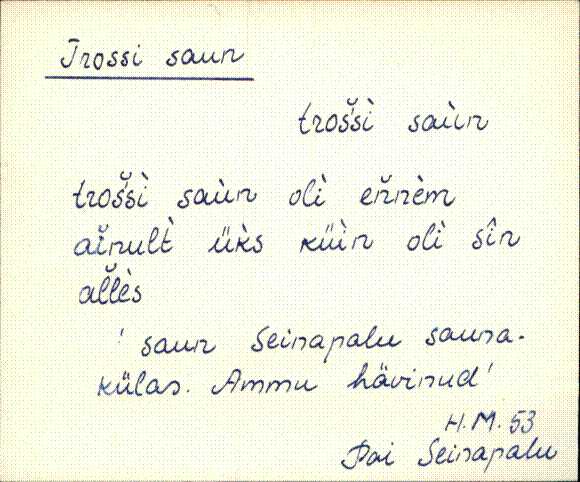 Trossi saun
trošsì saùn
trošsì saùn olì eňnèm
aǐnult̀ ük̀s küìn olì sîn
aľlès
' saun Seinapalu sauna-
külas. Ammu hävinud'
H.M. 53
Pai Seinapalu